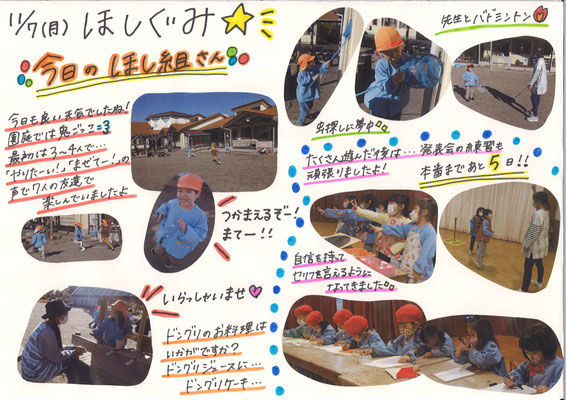 11/7(月) ほしぐみ
今日のほし組さん
今日も良い天気でしたね!
園庭では鬼ごっこ=3
最初は3〜4人で…
「やりたーい!」「まぜてー!」の
声で7人の友達で
楽しんでいましたよ
つかまえるぞー!
まてー!!
いらっしゃいませ♡
ドングリのお料理は
いかがですか?
ドングリジュースに…
ドングリケーキ…
先生とバドミントン
虫探しに夢中
たくさん遊んだ後は…発表会の練習も
頑張りましたよ!
本番まであと5日!!
自信を持って
セリフを言えるように
なってきました